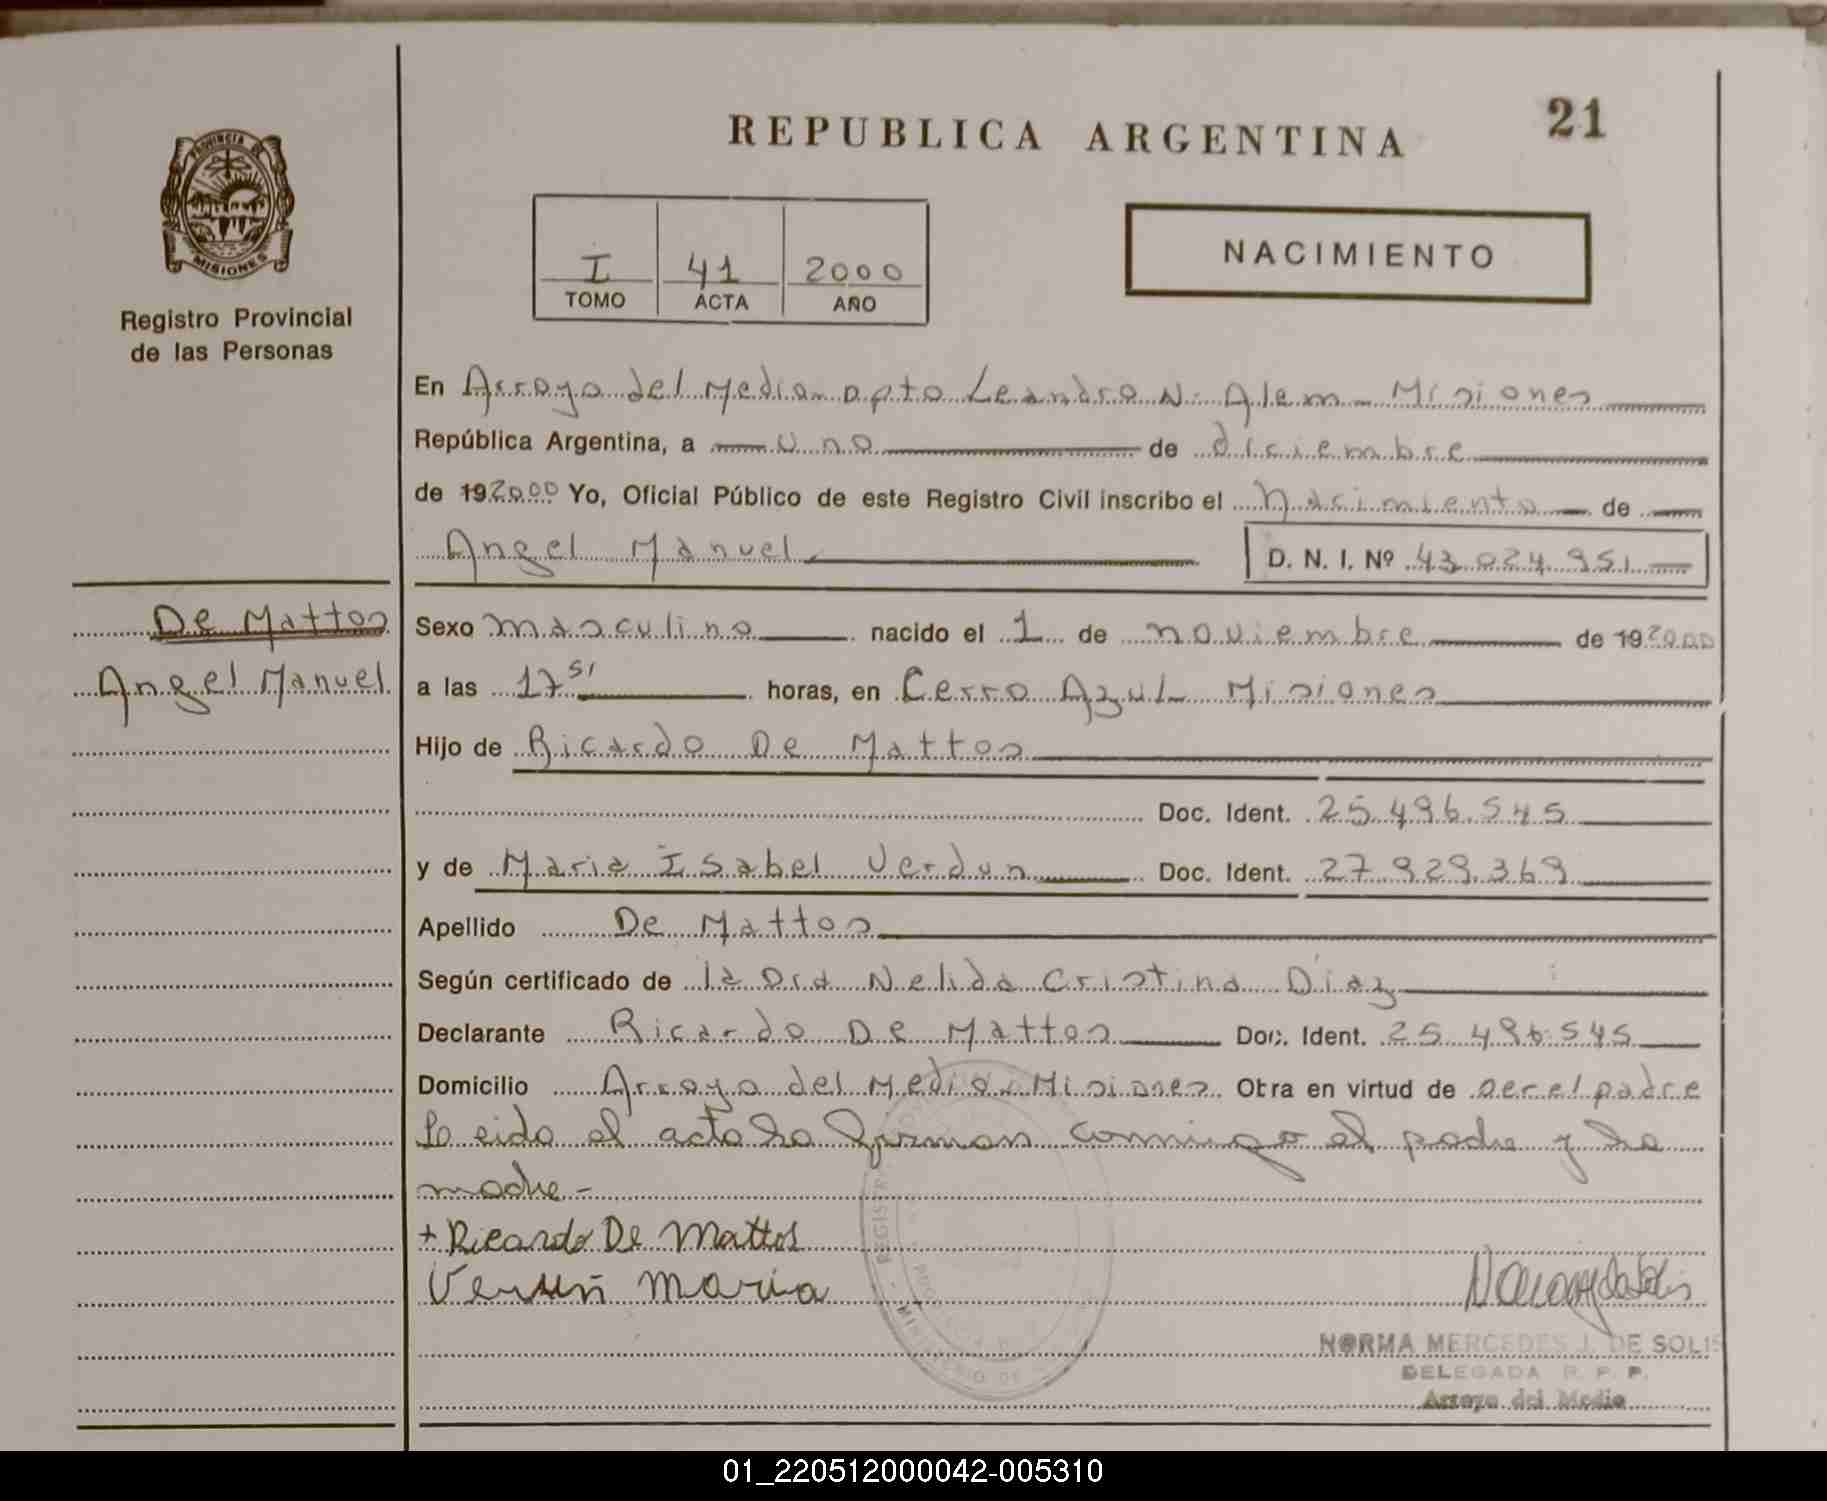 REPUBLICA ARGENTINA
21
PROVINCIA DE
MISIONES
Registro Provincial
de las Personas
I 41 2000
TOMO ACTA AÑO
NACIMIENTO
En Arroyo del Medio - Dpto Leandro N. Alem - Misiones
República Argentina, a uno de diciembre
de 192000 Yo, Oficial Público de este Registro Civil inscribo el nacimiento de
Angel Manuel D. N. I. Nº 43.024.951
De Mattos
Angel Manuel
Sexo masculino nacido el 1 de noviembre de 192000
a las 17 51 horas, en Cerro Azul Misiones
Hijo de Ricardo De Mattos
Doc. Ident. 25.496.545
y de Maria Isabel Verdun Doc. Ident. 27.929.369
Apellido De Mattos
Según certificado de la Dra Nelida Cristina Diaz
Declarante Ricardo De Mattos Doc. Ident. 25.496.545
Domicilio Arroyo del Medio - Misiones Obra en virtud de ser el padre
Leido el acta la firman conmigo el padre y la
madre -
+ Ricardo De Mattos
Verdun Maria
NORMA MERCEDES J. DE SOLIS
DELEGADA R. P. P.
Arroyo del Medio
01_220512000042-005310